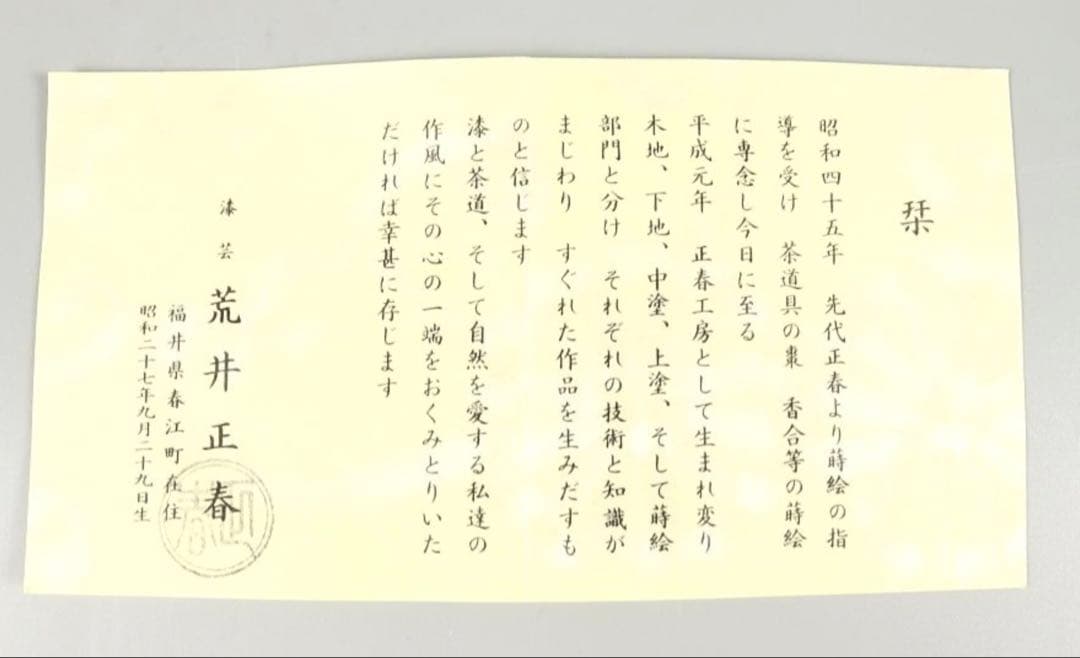 栞
昭和四十五年　先代正春より蒔絵の指
導を受け　茶道具の棗　香合等の蒔絵
に専念し今日に至る
平成元年　正春工房として生まれ変り
木地、下地、中塗、上塗、そして蒔絵
部門と分け　それぞれの技術と知識が
まじわり　すぐれた作品を生みだすも
のと信じます
漆と茶道、そして自然を愛する私達の
作風にその心の一端をおくみとりいた
だければ幸甚に存じます
漆芸　荒井正春
福井県春江町在住
昭和二十七年九月二十九日生